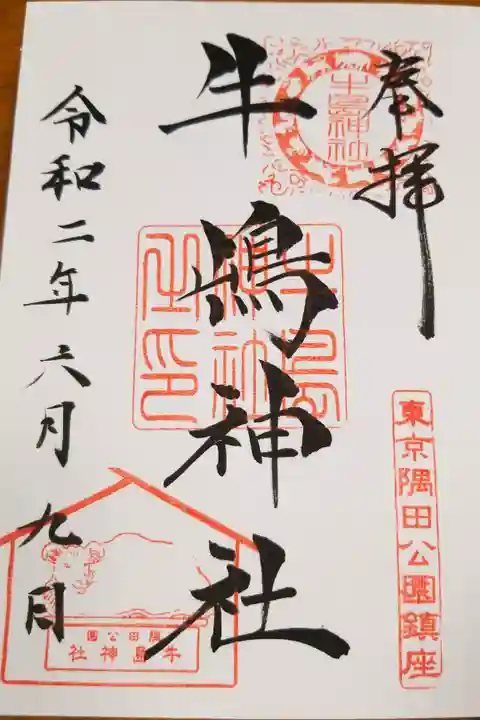 奉拝
牛島神社
東京隅田公園鎮座
牛嶋神社
牛島神社之印
令和二年六月九日
隅田公園
牛島神社